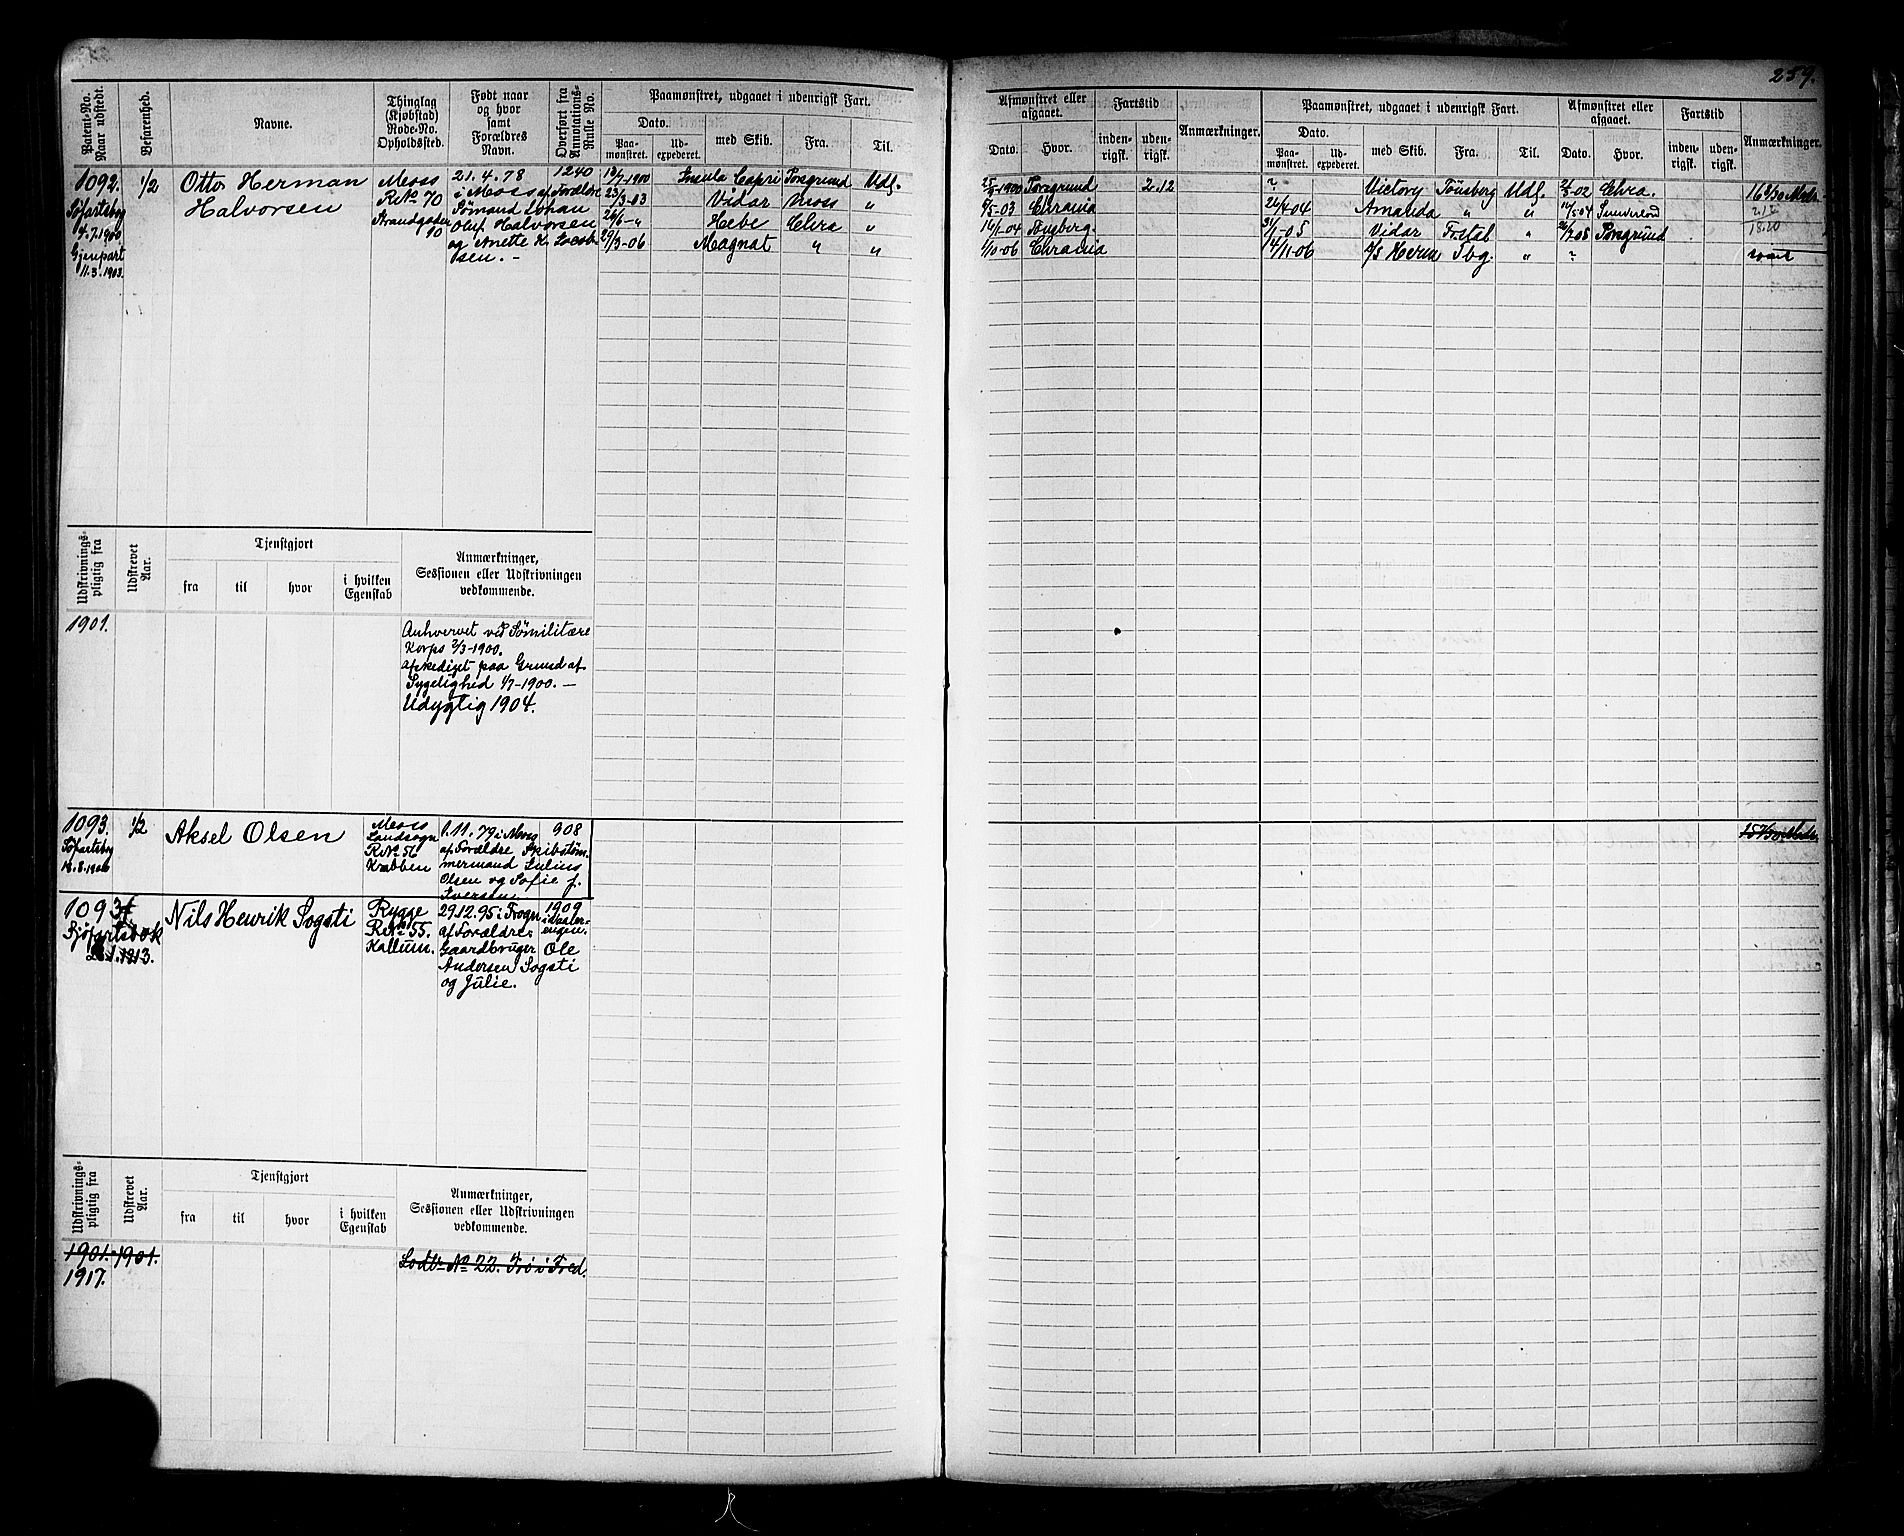 259.
Patent-No. Naar udstedt.
Befarenhed.
Navne.
Thinglag (Kjøbstad) Rode-No. Opholdssted.
Født naar og hvor samt Forældres Navn.
Overført fra Annotations- Rulle No.
Paamønstret, udgaaet i udenrigsk Fart.
Dato.
Paa- mønstret.
Ud- expederet.
med Skib.
Fra.
Til.
Afmønstret eller afgaaet.
Dato.
Hvor.
Fartstid
inden- rigsk.
uden- rigsk.
Anmærkninger.
Paamønstret, udgaaet i udenrigsk Fart.
Dato.
Paa- mønstret.
Ud- expederet.
med Skib.
Fra.
Til.
Afmønstret eller afgaaet.
Dato.
Hvor.
Fartstid
inden- rigsk.
uden- rigsk.
Anmærkninger.
1092.
Søfartsbog
4/7.1900
Gjenpart
11.3.1903.
1/2
Otto Herman
Halvorsen
Moss
R No 70
Strandgaden
10
21.4.78
i Moss af Forældre
Sømand Johan
Oluf Halvorsen
og Anette K. Jacob-
sen. -
1240
13/7 1900 Insula Capri Porsgrund Udl.
23/3-03 Vidar Moss "
26/6-" Hebe Chra "
29/3-06 Magnat " "
1900 Porsgrund 2.12
/5-03 Chrania
16/1-04
1/10-06 Chrania
? Victory Tönsberg Udl. -02 Chra.
26/4 04 Amanda " " 12/5 04
31/1-05 Vidar Frstad " 26/7-05 Porsgrund
14/11-06 Tbg. " ?
2.12
18.20
Udskrivnings- pligtig fra
Udskrevet Aar.
Tjenstgjort
fra
til
hvor
i hvilken Egenskab
Anmærkninger,
Sessionen eller Udskrivningen
vedkommende.
1901.
Anhvervet ved Sømilitære
Korps 2/3-1900.
afskediget paa Grund af
Sygelighed 4/7-1900. -
Udygtig 1904.
1093.
Søfartsbog
1/2
Aksel Olsen
Moss
Landsogn
R No 56
Krabben
1.11.79 i Moss
af Forældre Skibstøm-
mermand Julius
Olsen og Sofie f.
Iversen.
908
1093
Sjøfartsbok
1913.
Nils Henrik Sogsti
Rygge
R No 55.
Kallum.
29.12.95 i Frogn
af Forældre:
Gaardbruger Ole
Andersen Sogsti
og Julie.
1909
Udskrivnings- pligtig fra
Udskrevet Aar.
Tjenstgjort
fra
til
hvor
i hvilken Egenskab
Anmærkninger,
Sessionen eller Udskrivningen
vedkommende.
1901. 1901.
Lodtr No 22. Fri i Fred.
1917.